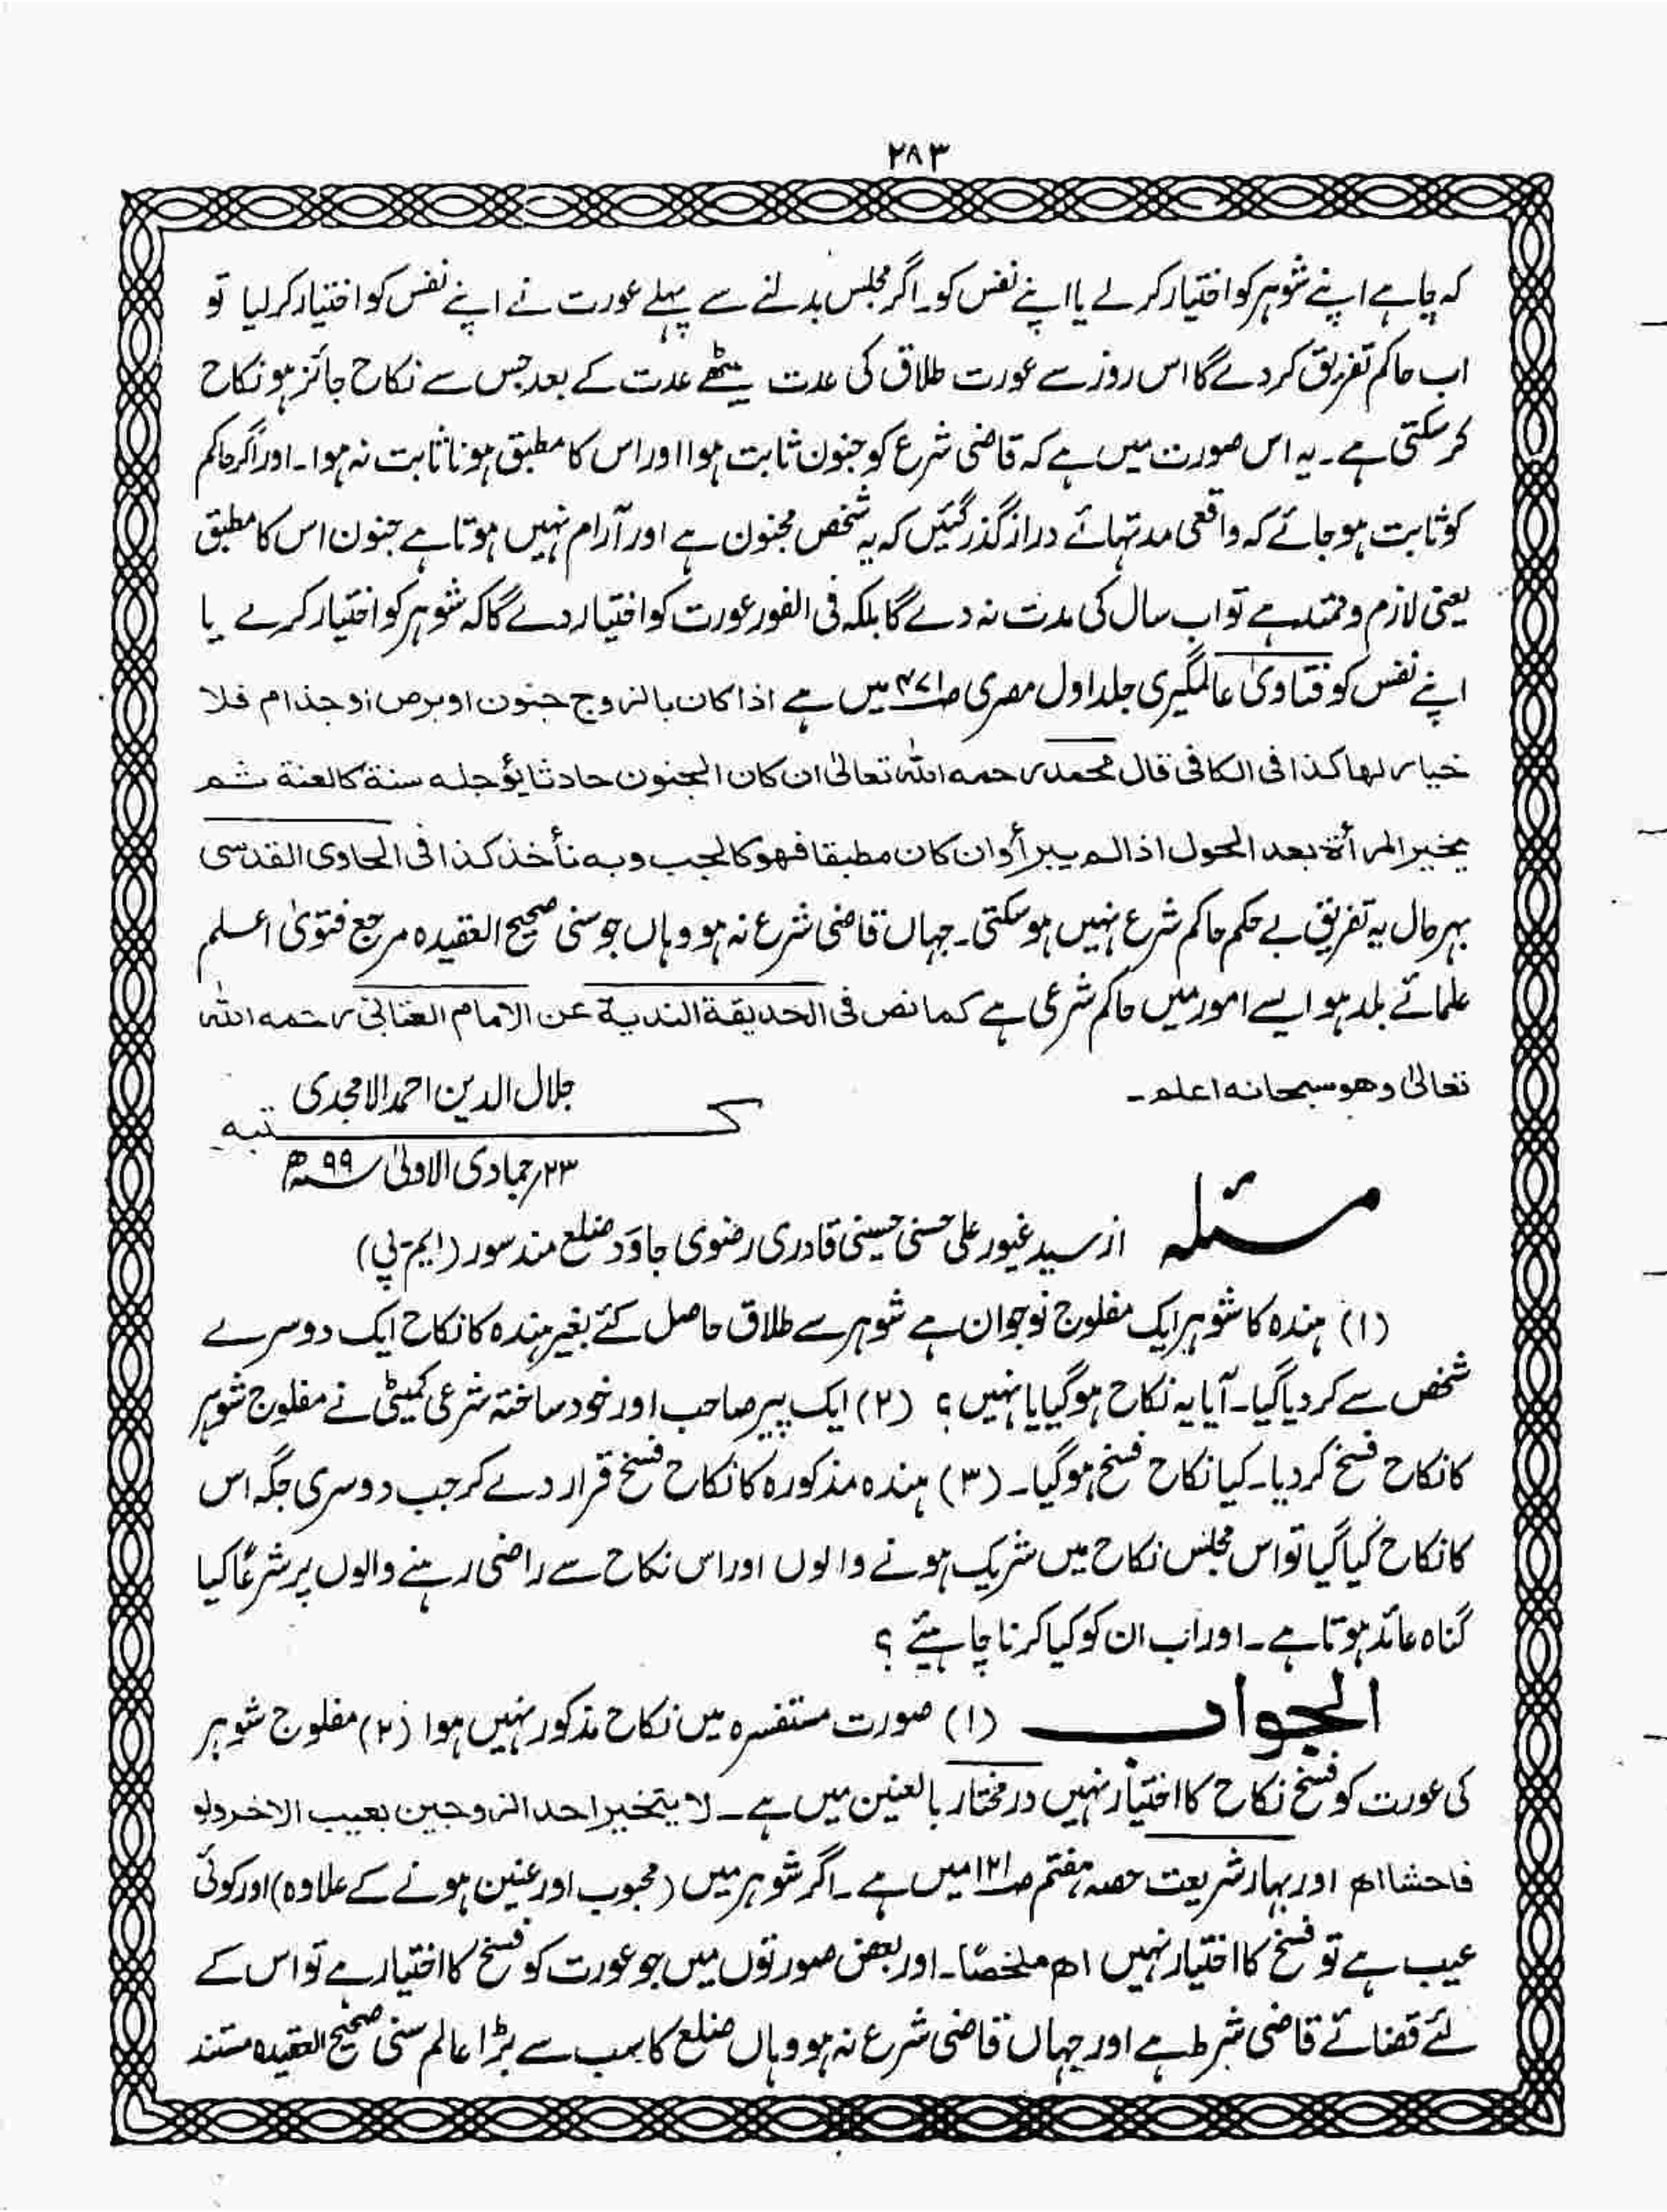 ۲۸۳
کہ چاہے اپنے شوہر کو اختیار کر لے یا اپنے نفس کو۔ اگر مجلس بدلنے سے پہلے عورت نے اپنے نفس کو اختیار کر لیا تو
اب حاکم تفریق کر دے گا اس روز سے عورت طلاق کی عدت بیٹھے عدت کے بعد جس سے نکاح جائز ہو نکاح
کر سکتی ہے۔ یہ اس صورت میں ہے کہ قاضی شرع کو جنون ثابت ہوا اور اس کا مطبق ہونا ثابت نہ ہوا۔ اور اگر حاکم
کو ثابت ہو جائے کہ واقعی مدتہائے دراز گذر گئیں کہ یہ شخص مجنون ہے اور آرام نہیں ہوتا ہے جنون اس کا مطبق
یعنی لازم و ممتد ہے تو اب سال کی مدت نہ دے گا بلکہ فی الفور عورت کو اختیار دے گا کہ شوہر کو اختیار کرے یا
اپنے نفس کو فتاویٰ عالمگیری جلد اول مصری ص۴۷۱ میں ہے اذا کان بالزوج جنون او برص او جذام فلا
خیار لھا کذا فی الکافی قال محمد رحمہ اللہ تعالیٰ ان کان الجنون حادثا یؤجلہ سنة کالعنة ثم
یخیر المرأة بعد الحول اذا لم یبرأ وان کان مطبقا فھو کالجب وبہ نأخذ کذا فی الحاوی القدسی
بہر حال یہ تفریق بے حکم حاکم شرع نہیں ہو سکتی۔ جہاں قاضی شرع نہ ہو وہاں جو سنی صحیح العقیدہ مرجع فتویٰ اعلم
علمائے بلد ہو ایسے امور میں حاکم شرعی ہے کما نص فی الحدیقة الندیة عن الامام العتابی رحمہ اللہ
تعالیٰ وھو سبحانہ اعلم۔
جلال الدین احمد الامجدی
کتبہ
۲۳؍جمادی الاولیٰ ۹۹ھ
مسئلہ از سید غیور علی حسنی حسینی قادری رضوی جاوَد ضلع مندسور (ایم۔پی)
(۱) ہندہ کا شوہر ایک مفلوج نوجوان ہے شوہر سے طلاق حاصل کئے بغیر ہندہ کا نکاح ایک دوسرے
شخص سے کر دیا گیا۔ آیا یہ نکاح ہو گیا یا نہیں؟ (۲) ایک پیر صاحب اور خود ساختہ شرعی کمیٹی نے مفلوج شوہر
کا نکاح فسخ کر دیا۔ کیا نکاح فسخ ہو گیا۔ (۳) ہندہ مذکورہ کا نکاح فسخ قرار دے کر جب دوسری جگہ اس
کا نکاح کیا گیا تو اس مجلس نکاح میں شریک ہونے والوں اور اس نکاح سے راضی رہنے والوں پر شرعًا کیا
گناہ عائد ہوتا ہے۔ اور اب ان کو کیا کرنا چاہیئے؟
الجواب (۱) صورت مستفسرہ میں نکاح مذکور نہیں ہوا (۲) مفلوج شوہر
کی عورت کو فسخ نکاح کا اختیار نہیں درمختار بالعنین میں ہے۔ لا یتخیر احد الزوجین بعیب الاخر ولو
فاحشا اھ اور بہار شریعت حصہ ہفتم ص۱۲۱ میں ہے۔ اگر شوہر میں (مجبوب اور عنین ہونے کے علاوہ) اور کوئی
عیب ہے تو فسخ کا اختیار نہیں اھ ملخصًا۔ اور بعض صورتوں میں جو عورت کو فسخ کا اختیار ہے تو اس کے
لئے قضائے قاضی شرط ہے اور جہاں قاضی شرع نہ ہو وہاں ضلع کا سب سے بڑا عالم سنی صحیح العقیدہ مستند